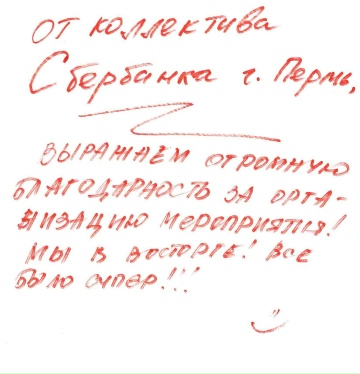 от коллектива
Сбербанка г. Пермь,
ВЫРАЖАЕМ ОГРОМНУЮ
БЛАГОДАРНОСТЬ ЗА ОРГА-
НИЗАЦИЮ МЕРОПРИЯТИЯ!
МЫ В ВОСТОРГЕ! ВСЕ
БЫЛО СУПЕР!!!